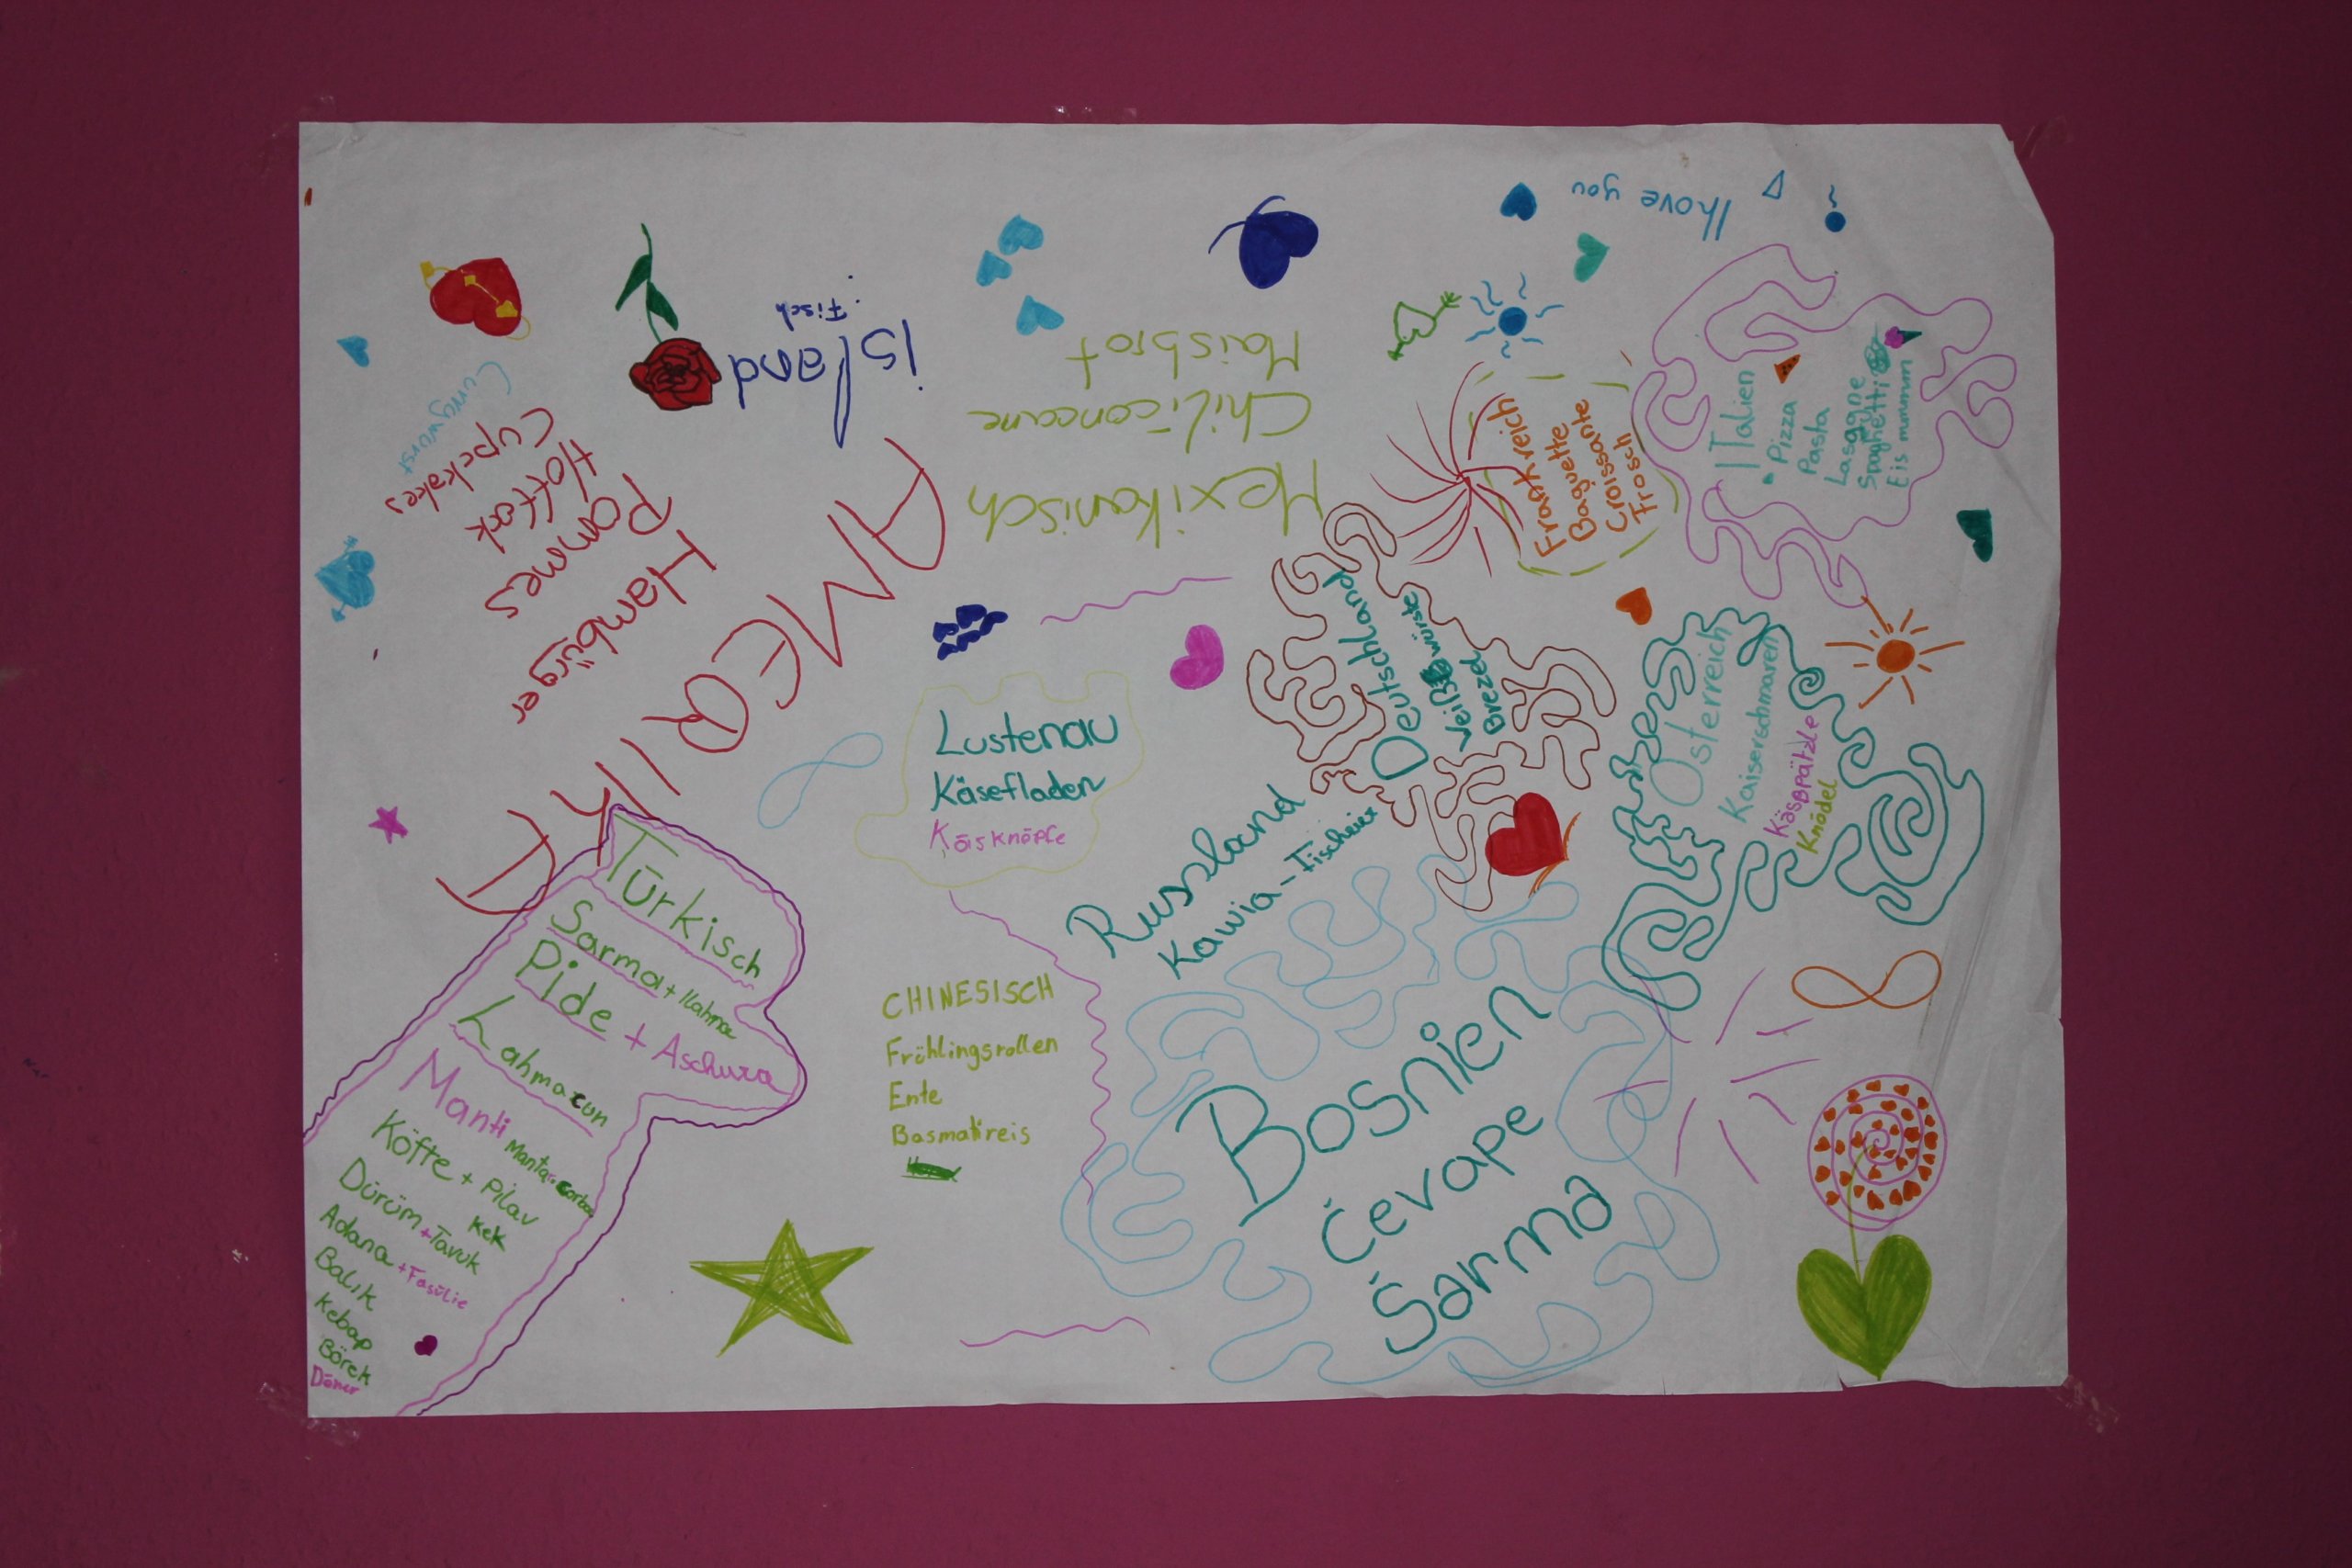 I love you
island
Fisch
AMERIKA
Hambürger
Pommes
Hottock
Cupckakes
Currywurst
Mexikanisch
Chiliconcarne
Maisbrot
Frankreich
Baguette
Croissante
Frosch
ITalien
Pizza
Pasta
Lasagne
Spaghetti
Eis mmmm
Deutschland
Weißwürste
Brezel
Österreich
Kaiserschmaren
Kässpätzle
Knödel
Lustenau
Käsefladen
Käsknöpfle
Russland
Kawia-Fischeier
Türkisch
Sarma + Lahna
Pide + Aschura
Lahmacun
Manti Mantar Corba
Köfte + Pilav
Kek
Dürüm + Tavuk
Adana + Fasülie
Balik
Kebap
Börek
Döner
CHINESISCH
Frühlingsrollen
Ente
Basmatireis
Bosnien
Čevape
Šarma